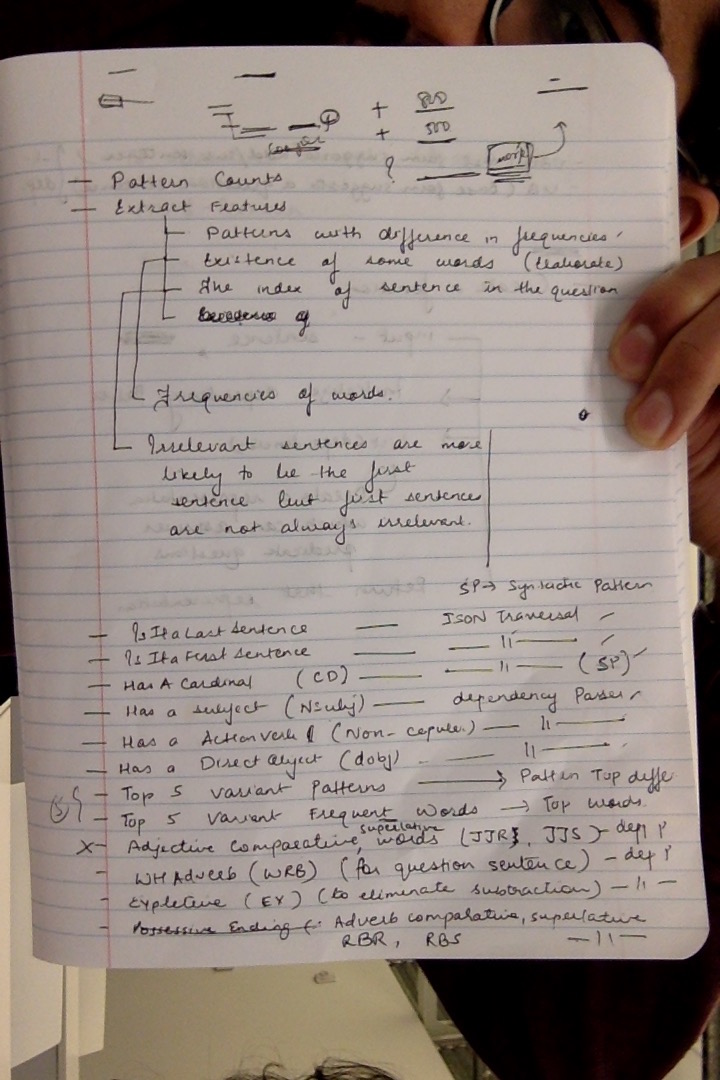 + 800
+ 500
?
work
— Pattern Counts
— Extract Features
— Patterns with difference in frequencies
— Existence of some words (Elaborate)
— The index of sentence in the question
— Frequencies of words.
— Irrelevant sentences are more
likely to be the first
sentence but first sentences
are not always irrelevant.
SP → Syntactic Pattern
— Is It a Last Sentence — JSON Traversal
— Is It a First Sentence — — 11 —
— Has A Cardinal (CD) — — 11 — (SP)
— Has a subject (Nsubj) — dependency Parser
— Has a Action Verb (Non-copular) — 11 —
— Has a Direct Object (dobj) — 11 —
— Top 5 Variant Patterns → Patten Top diffe
(5) { — Top 5 Variant Frequent Words → Top words.
X — Adjective Comparative, superlative words (JJR, JJS) — dep P
— WH Adverb (WRB) (for question sentence) — dep P
— Expletive (EX) (to eliminate subtraction) — 11 —
— Possessive Ending (: Adverb comparative, superlative
RBR, RBS — 11 —